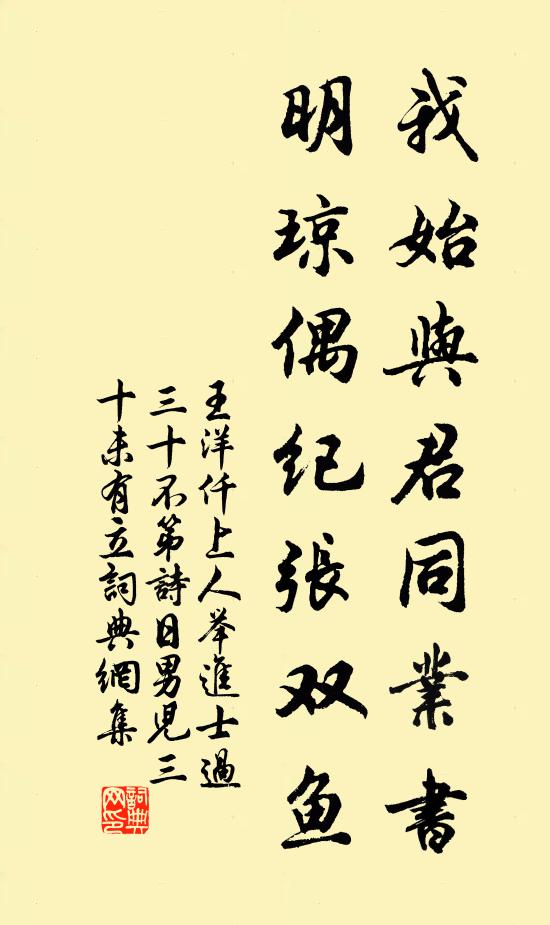 我始與君同業書
明琼偶纪張双鱼
王洋仟上人举進士過
三十不第詩日男児三
十未有立詞典網集
詞典网印